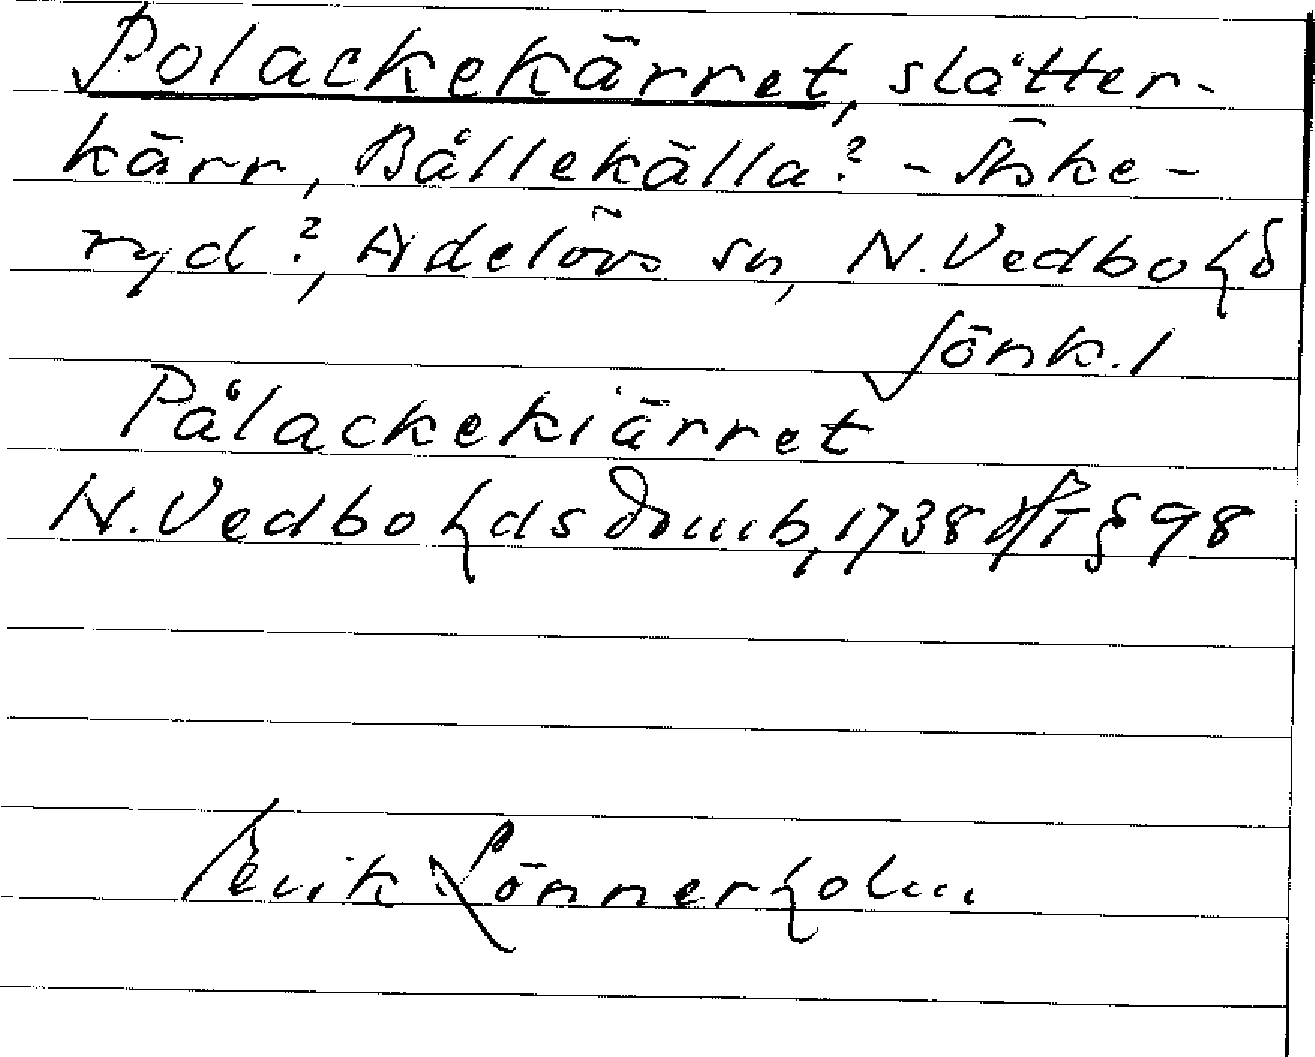 Polackekärret, slåtter-
kärr, Bållekälla? - Äske-
ryd?, Adelövs sn, N. Vedbo hd
Jönk. l
Pålackekiärret
N. Vedbo hds domb, 1738 HT § 98
Erik Lönnerholm